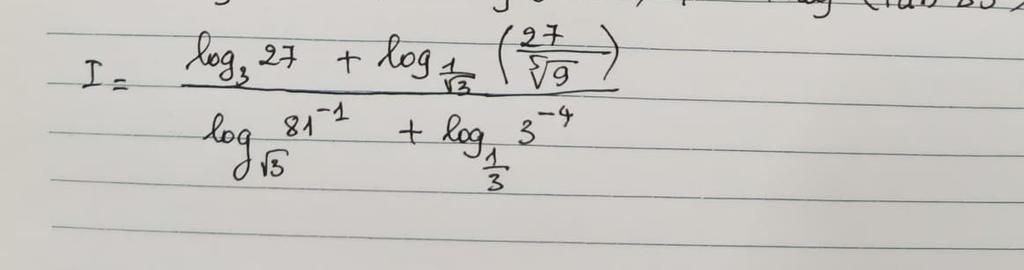 I = \frac{\log_3 27 + \log_{\frac{1}{\sqrt{3}}} \left( \frac{27}{\sqrt[5]{9}} \right)}{\log_{\sqrt{3}} 81^{-1} + \log_{\frac{1}{3}} 3^{-4}}